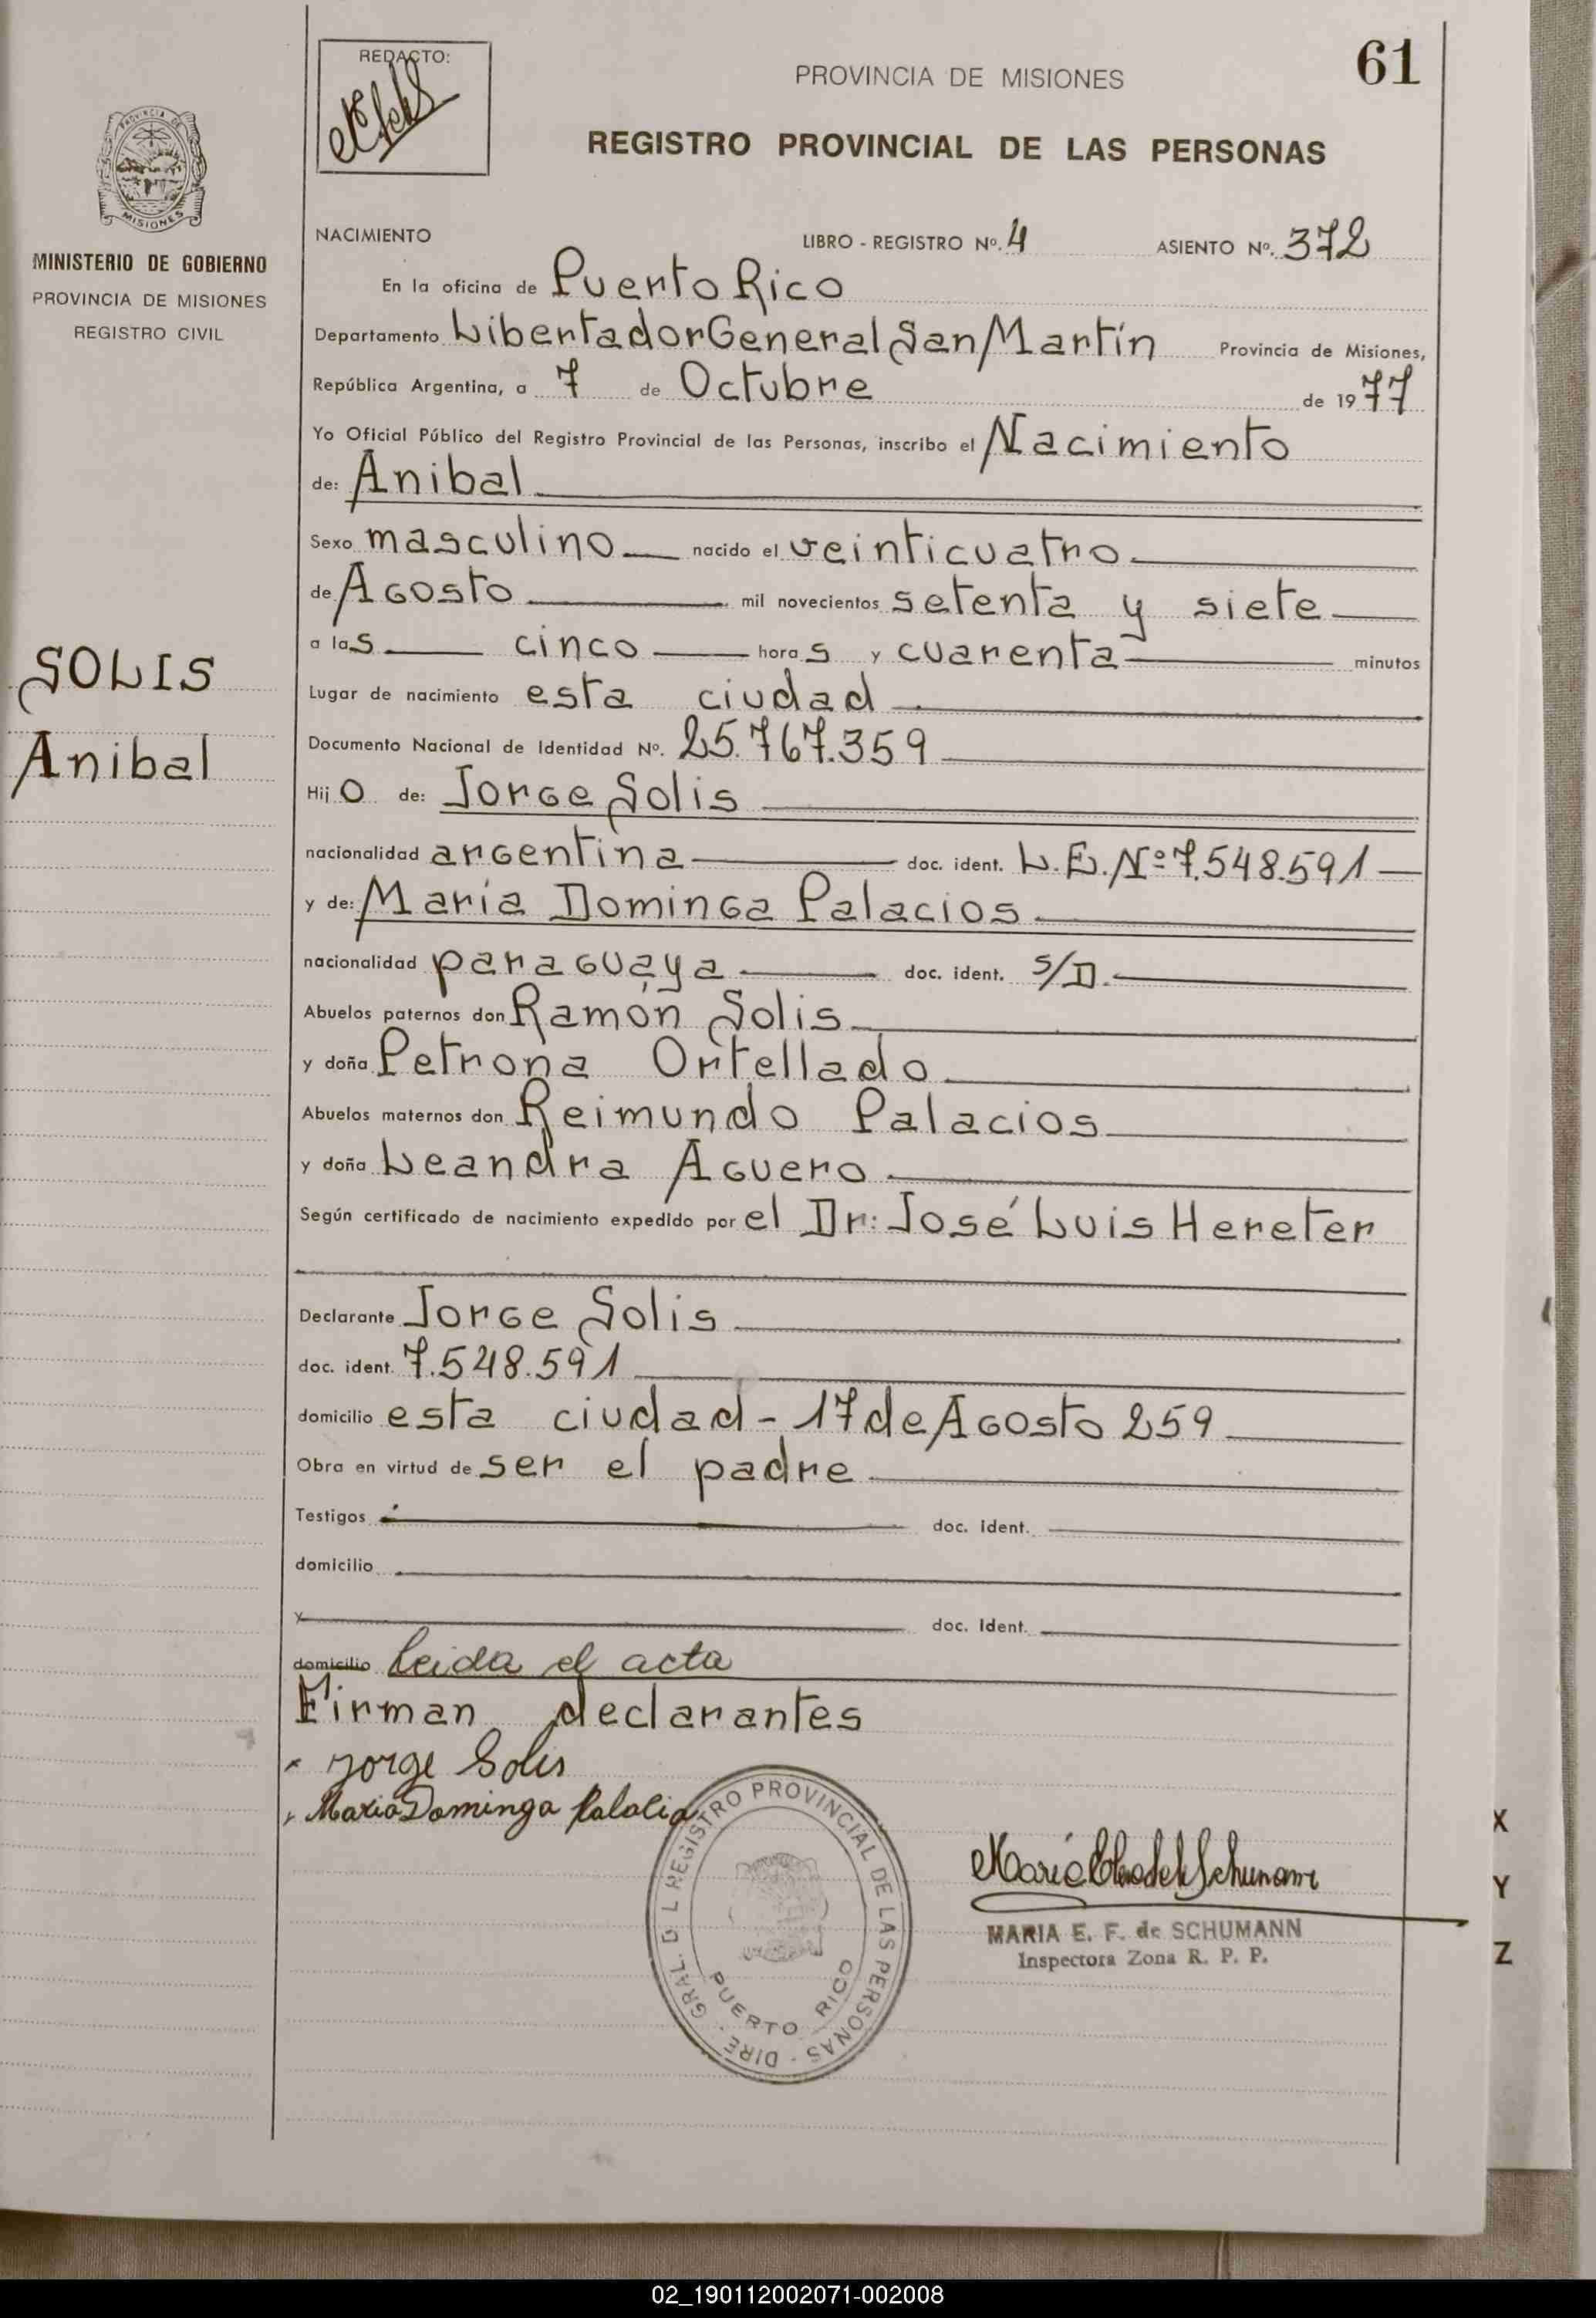 REDACTO:
PROVINCIA DE MISIONES
61
REGISTRO PROVINCIAL DE LAS PERSONAS
PROVINCIA DE
MISIONES
MINISTERIO DE GOBIERNO
PROVINCIA DE MISIONES
REGISTRO CIVIL
SOLIS
Anibal
NACIMIENTO LIBRO - REGISTRO Nº. 4 ASIENTO Nº. 372
En la oficina de Puerto Rico
Departamento Libertador General San Martín Provincia de Misiones,
República Argentina, a 7 de Octubre de 1977
Yo Oficial Público del Registro Provincial de las Personas, inscribo el Nacimiento
de: Anibal
Sexo masculino nacido el veinticuatro
de Agosto mil novecientos setenta y siete
a las cinco horas y cuarenta minutos
Lugar de nacimiento esta ciudad
Documento Nacional de Identidad Nº. 25.767.359
Hijo de: Jorge Solis
nacionalidad argentina doc. ident. L.E.Nº 7.548.591
y de: María Dominga Palacios
nacionalidad paraguaya doc. ident. S/D.
Abuelos paternos don Ramón Solis
y doña Petrona Ortellado
Abuelos maternos don Reimundo Palacios
y doña Leandra Aguero
Según certificado de nacimiento expedido por el Dr: José Luis Hereter
Declarante Jorge Solis
doc. ident. 7.548.591
domicilio esta ciudad - 17 de Agosto 259
Obra en virtud de ser el padre
Testigos doc. ident.
domicilio
y doc. ident.
domicilio Leida el acta
Firman declarantes
Jorge Solis
Maria Dominga Palacio
DIRE. GRAL. D L REGISTRO PROVINCIAL DE LAS PERSONAS
PUERTO RICO
MARIA E. F. de SCHUMANN
Inspectora Zona R. P. P.
X
Y
Z
02_190112002071-002008